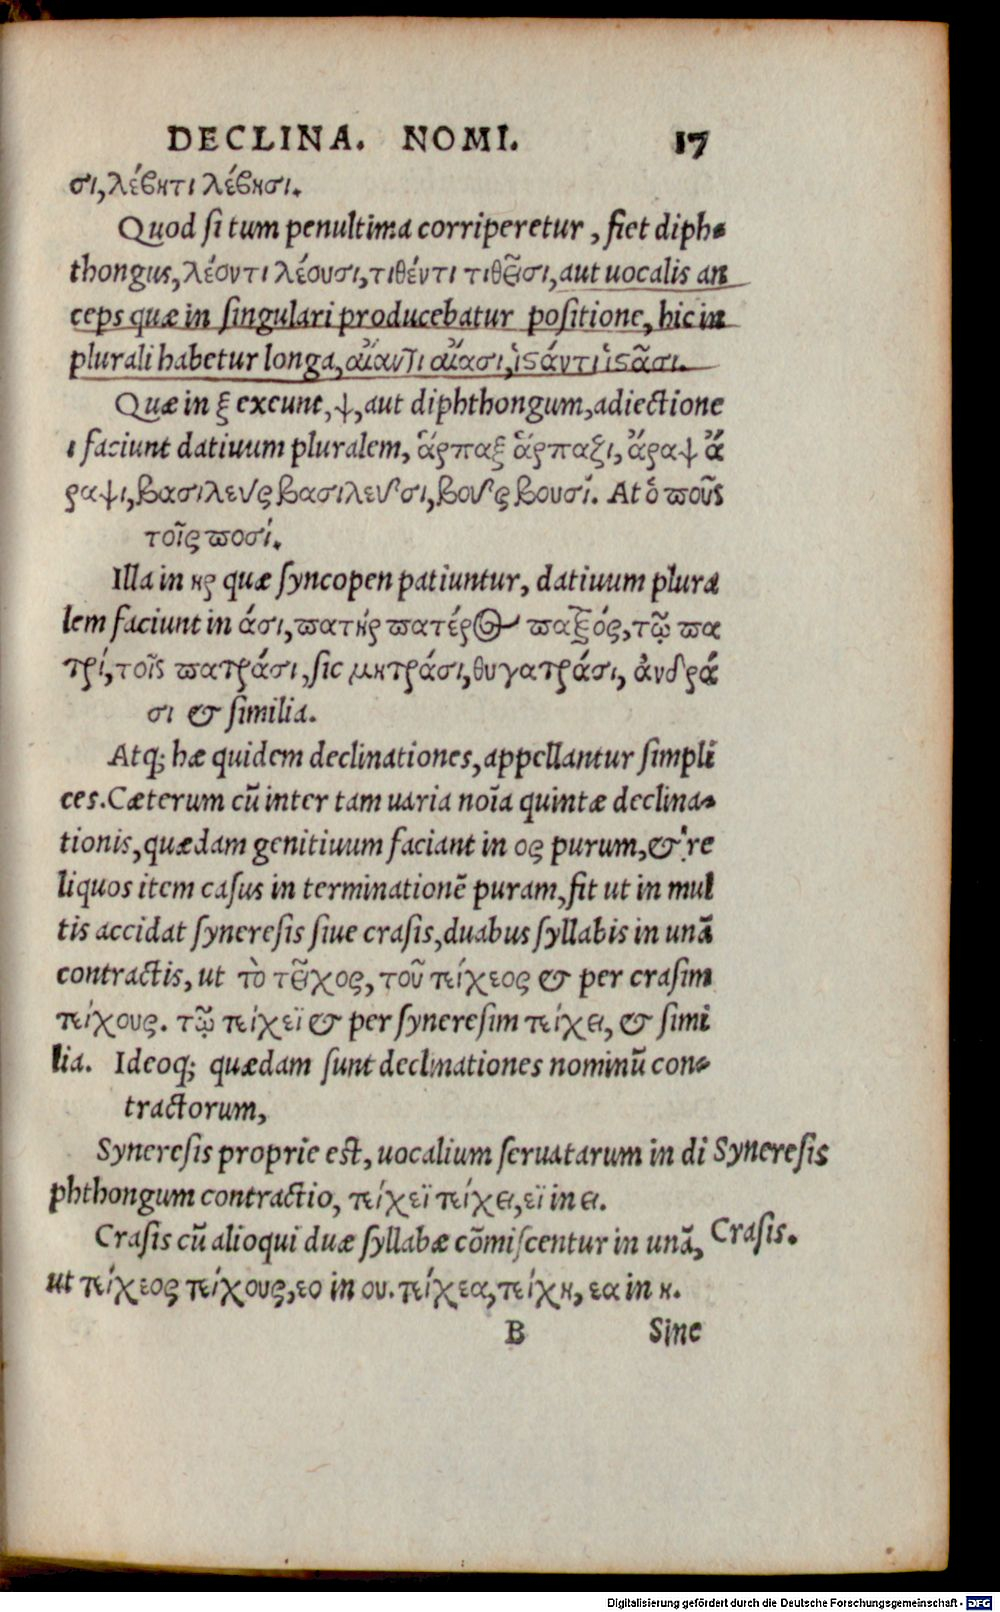 DECLINA. NOMI. 17
σι, λέβητι λέβησι.
Quod si tum penultima corriperetur, fiet diph-
thongus, λέοντι λέουσι, τιθέντι τιθεῖσι, aut uocalis an
ceps quæ in singulari producebatur positione, hic in
plurali habetur longa, αἴαντι αἴασι, ἱστάντι ἱστᾶσι.
Quæ in ξ exeunt, ψ, aut diphthongum, adiectione
ι faciunt datiuum pluralem, ἅρπαξ ἅρπαξι, ἄραψ ἄ
ραψι, βασιλεὺς βασιλεῦσι, βοῦς βουσί. At ὁ ποῦς
τοῖς ποσί.
Illa in ηρ quæ syncopen patiuntur, datiuum plura
lem faciunt in άσι, πατήρ πατέρος πατρός, τῷ πα
τρί, τοῖς πατράσι, sic μητράσι, θυγατράσι, ἀνδρά
σι & similia.
Atq; hæ quidem declinationes, appellantur simpli
ces. Cæterum cū inter tam uaria noīa quintæ declina-
tionis, quædam genitiuum faciant in ος purum, & re
liquos item casus in terminationē puram, fit ut in mul
tis accidat syneresis siue crasis, duabus syllabis in unā
contractis, ut τὸ τεῖχος, τοῦ τείχεος & per crasim
τείχους. τῷ τείχεϊ & per syneresim τείχει, & simi
lia. Ideoq; quædam sunt declinationes nominū con-
tractorum,
Syneresis proprie est, uocalium seruatarum in di Syneresis
phthongum contractio, τείχεϊ τείχει, εϊ in ει.
Crasis cū alioqui duæ syllabæ cōmiscentur in unā, Crasis.
ut τείχεος τείχους, εο in ου. τείχεα, τείχη, εα in η.
B Sine
Digitalisierung gefördert durch die Deutsche Forschungsgemeinschaft - DFG